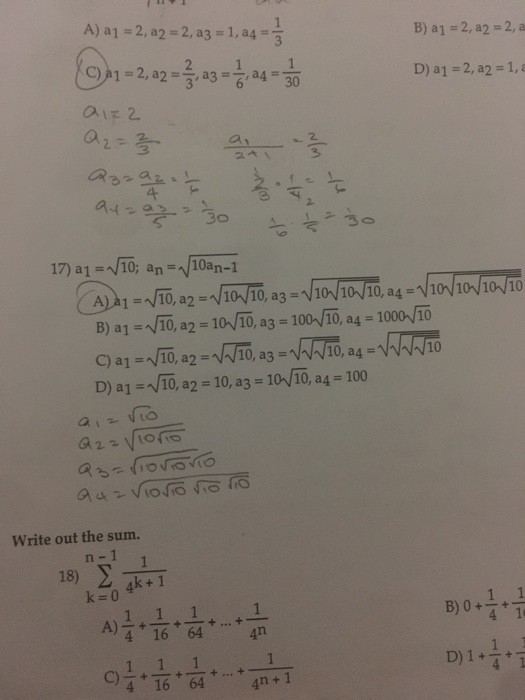 A) a1 = 2, a2 = 2, a3 = 1, a4 = 1/3
B) a1 = 2, a2 = 2, a
C) a1 = 2, a2 = 2/3, a3 = 1/6, a4 = 1/30
D) a1 = 2, a2 = 1,
a1 = 2
a2 = 2/3 a1/2+1 = 2/3
a3 = a2/4 = 1/6 2/3 · 1/4 = 1/6
a4 = a3/5 = 1/30 1/6 · 1/5 = 1/30
17) a1 = √10; an = √10an-1
A) a1 = √10, a2 = √10√10, a3 = √10√10√10, a4 = √10√10√10√10
B) a1 = √10, a2 = 10√10, a3 = 100√10, a4 = 1000√10
C) a1 = √10, a2 = √√10, a3 = √√√10, a4 = √√√√10
D) a1 = √10, a2 = 10, a3 = 10√10, a4 = 100
a1 = √10
a2 = √10√10
a3 = √10√10√10
a4 = √10√10√10√10
Write out the sum.
18) n-1 Σ k=0 1/4k+1
A) 1/4 + 1/16 + 1/64 + ... + 1/4n
B) 0 + 1/4 +
C) 1/4 + 1/16 + 1/64 + ... + 1/4n+1
D) 1 + 1/4 +